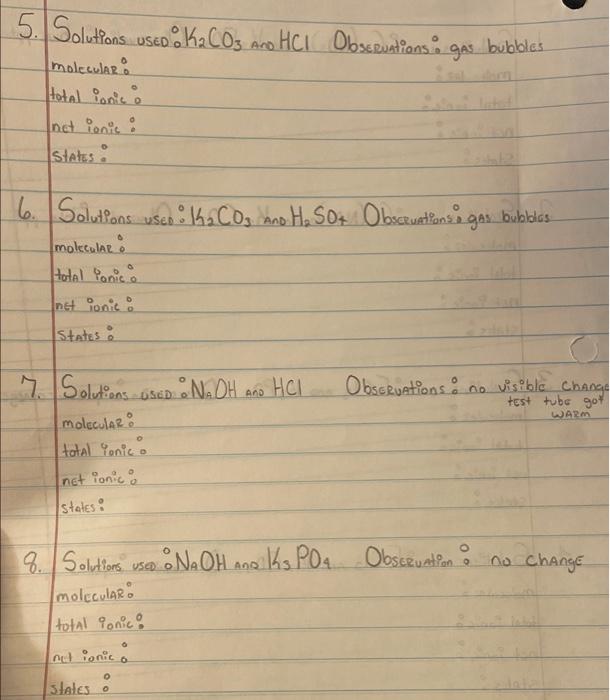 5. Solutions used: K2CO3 and HCl Observations: gas bubbles
molecular:
total ionic:
net ionic:
states:
6. Solutions used: K2CO3 and H2SO4 Observations: gas bubbles
molecular:
total ionic:
net ionic:
states:
7. Solutions used: NaOH and HCl Observations: no visible change
test tube got
warm
molecular:
total ionic:
net ionic:
states:
8. Solutions used: NaOH and K3PO4 Observation: no change
molecular:
total ionic:
net ionic:
states: